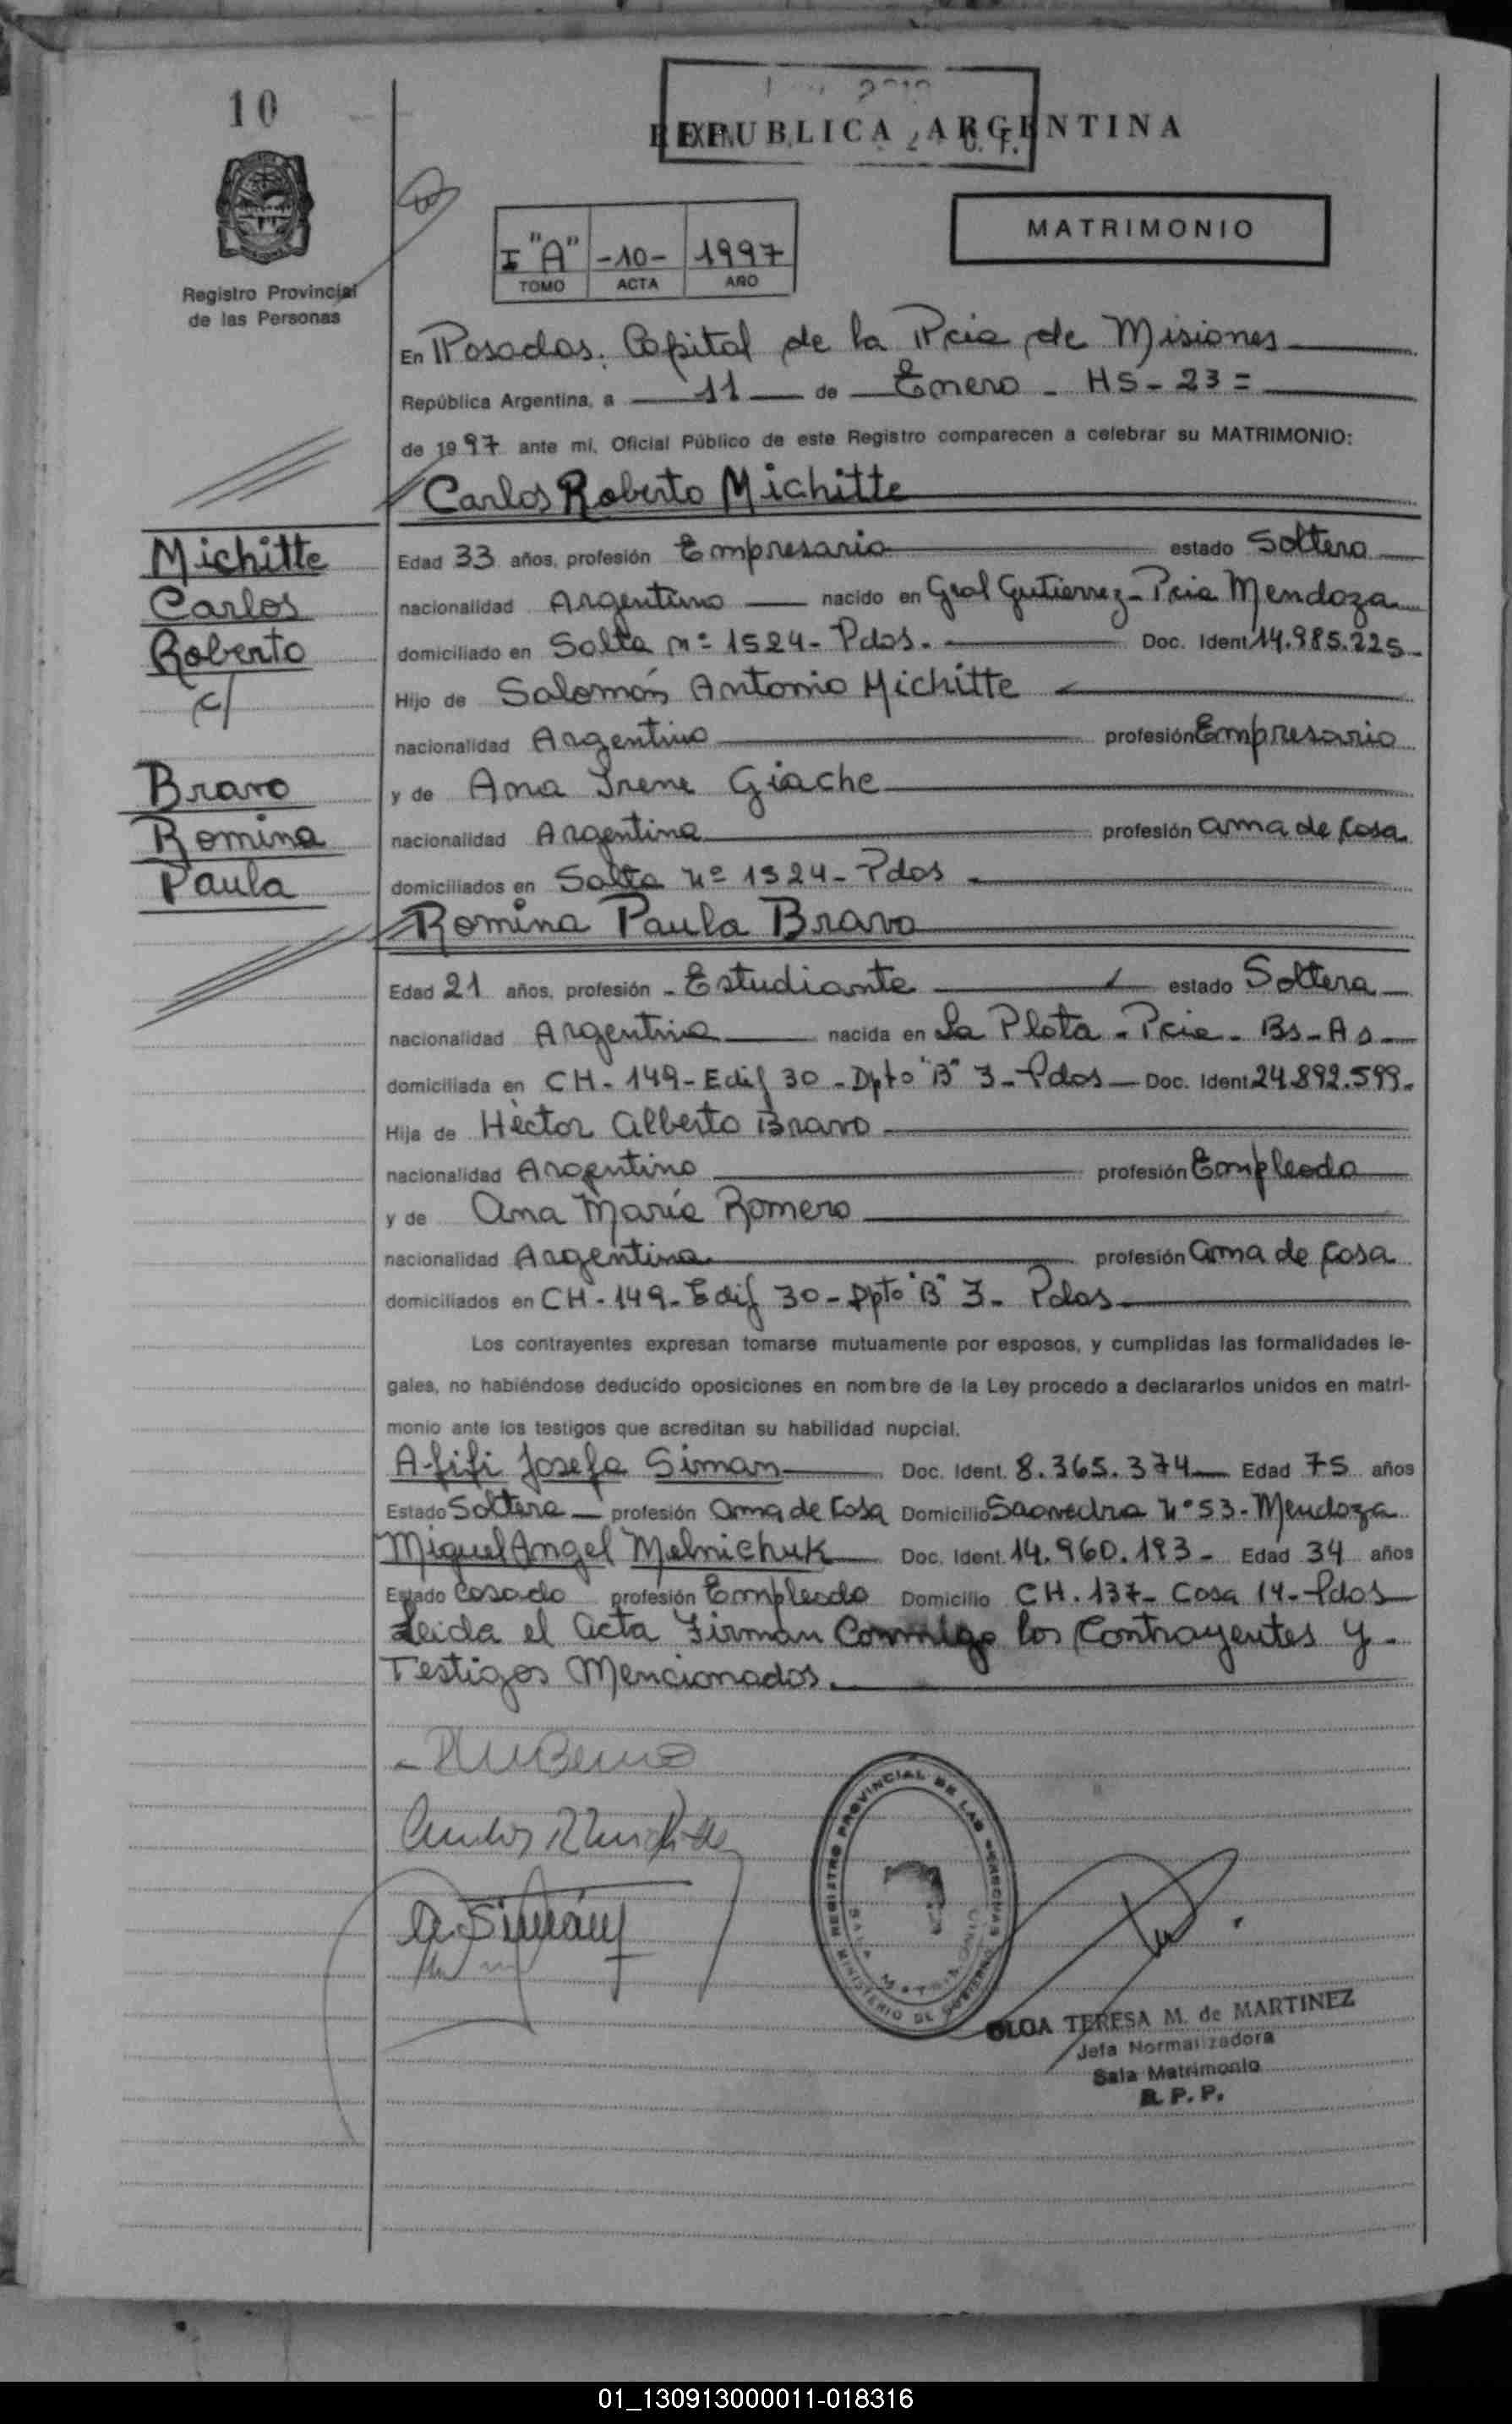 10
REPUBLICA ARGENTINA
Registro Provincial
de las Personas
MATRIMONIO
I "A" -10- 1997
TOMO ACTA AÑO
En Posadas. Capital de la Pcia de Misiones
República Argentina, a 11 de Enero - HS - 23 =
de 1997 ante mi, Oficial Público de este Registro comparecen a celebrar su MATRIMONIO:
Carlos Roberto Michitte
Michitte
Carlos
Roberto
c/
Bravo
Romina
Paula
Edad 33 años, profesión Empresario estado Soltero
nacionalidad Argentino nacido en Gral Gutierrez - Pcia Mendoza
domiciliado en Salta nº 1524 - Pdas. Doc. Ident. 14.985.225
Hijo de Salomón Antonio Michitte
nacionalidad Argentino profesión Empresario
y de Ana Irene Giache
nacionalidad Argentina profesión ama de casa
domiciliados en Salta Nº 1524 - Pdas
Romina Paula Bravo
Edad 21 años, profesión - Estudiante estado Soltera
nacionalidad Argentina nacida en La Plata - Pcia - Bs - As
domiciliada en CH - 149 - Edif 30 - Dpto "B" 3 - Pdas - Doc. Ident. 24.892.599.
Hija de Héctor Alberto Bravo
nacionalidad Argentino profesión Empleado
y de Ana María Romero
nacionalidad Argentina profesión ama de casa
domiciliados en CH - 149 - Edif 30 - Dpto "B" 3 - Pdas
Los contrayentes expresan tomarse mutuamente por esposos, y cumplidas las formalidades le-
gales, no habiéndose deducido oposiciones en nombre de la Ley procedo a declararlos unidos en matri-
monio ante los testigos que acreditan su habilidad nupcial.
Afifi Josefa Siman Doc. Ident. 8.365.374 Edad 75 años
Estado Soltera profesión ama de casa Domicilio Saavedra Nº 53 - Mendoza
Miguel Angel Melnichuk Doc. Ident. 14.960.193 - Edad 34 años
Estado Casado profesión Empleado Domicilio CH. 137 - Casa 14 - Pdas
Leida el acta Firman Conmigo los Contrayentes y
Testigos Mencionados.
A. Simán
REGISTRO PROVINCIAL DE LAS PERSONAS
MINISTERIO DE GOBIERNO
OLGA TERESA M. de MARTINEZ
Jefa Normalizadora
Sala Matrimonio
R. P. P.
01_130913000011-018316